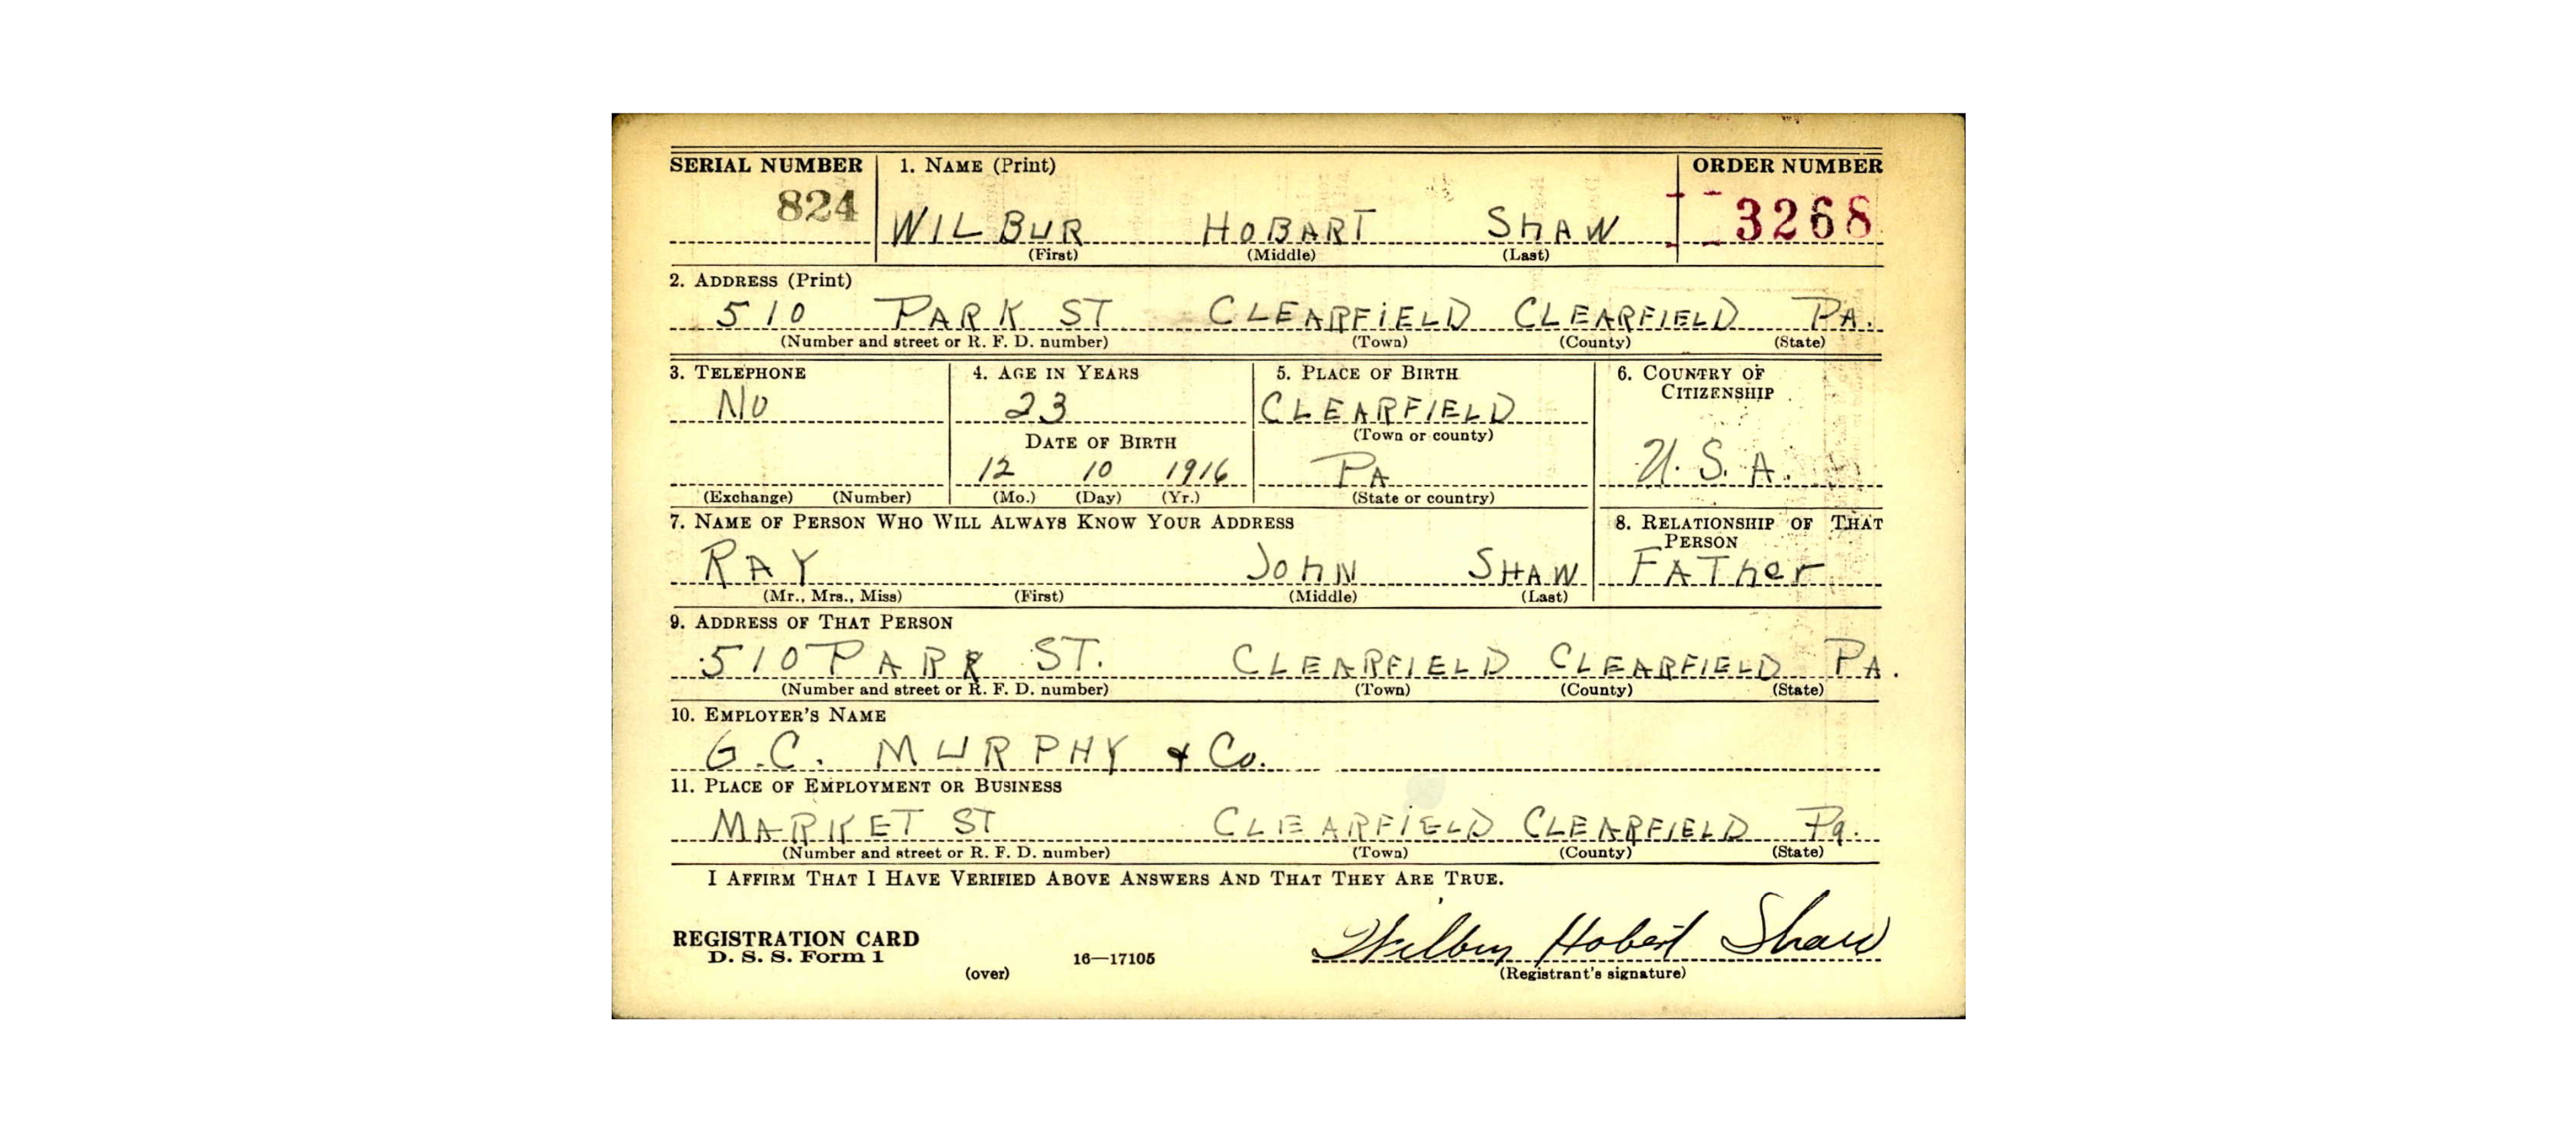 SERIAL NUMBER 1. NAME (Print) ORDER NUMBER
824 WILBUR HOBART SHAW 3268
(First) (Middle) (Last)
2. ADDRESS (Print)
510 PARK ST CLEARFIELD CLEARFIELD PA.
(Number and street or R. F. D. number) (Town) (County) (State)
3. TELEPHONE 4. AGE IN YEARS 5. PLACE OF BIRTH 6. COUNTRY OF
CITIZENSHIP
NO 23 CLEARFIELD
DATE OF BIRTH (Town or county)
12 10 1916 PA U.S.A.
(Exchange) (Number) (Mo.) (Day) (Yr.) (State or country)
7. NAME OF PERSON WHO WILL ALWAYS KNOW YOUR ADDRESS 8. RELATIONSHIP OF THAT
PERSON
RAY JOHN SHAW FATher
(Mr., Mrs., Miss) (First) (Middle) (Last)
9. ADDRESS OF THAT PERSON
510 PARK ST. CLEARFIELD CLEARFIELD PA.
(Number and street or R. F. D. number) (Town) (County) (State)
10. EMPLOYER'S NAME
G.C. MURPHY & Co.
11. PLACE OF EMPLOYMENT OR BUSINESS
MARKET ST CLEARFIELD CLEARFIELD Pa.
(Number and street or R. F. D. number) (Town) (County) (State)
I AFFIRM THAT I HAVE VERIFIED ABOVE ANSWERS AND THAT THEY ARE TRUE.
REGISTRATION CARD Wilbur Hobert Shaw
D. S. S. Form 1 16—17105
(over) (Registrant's signature)